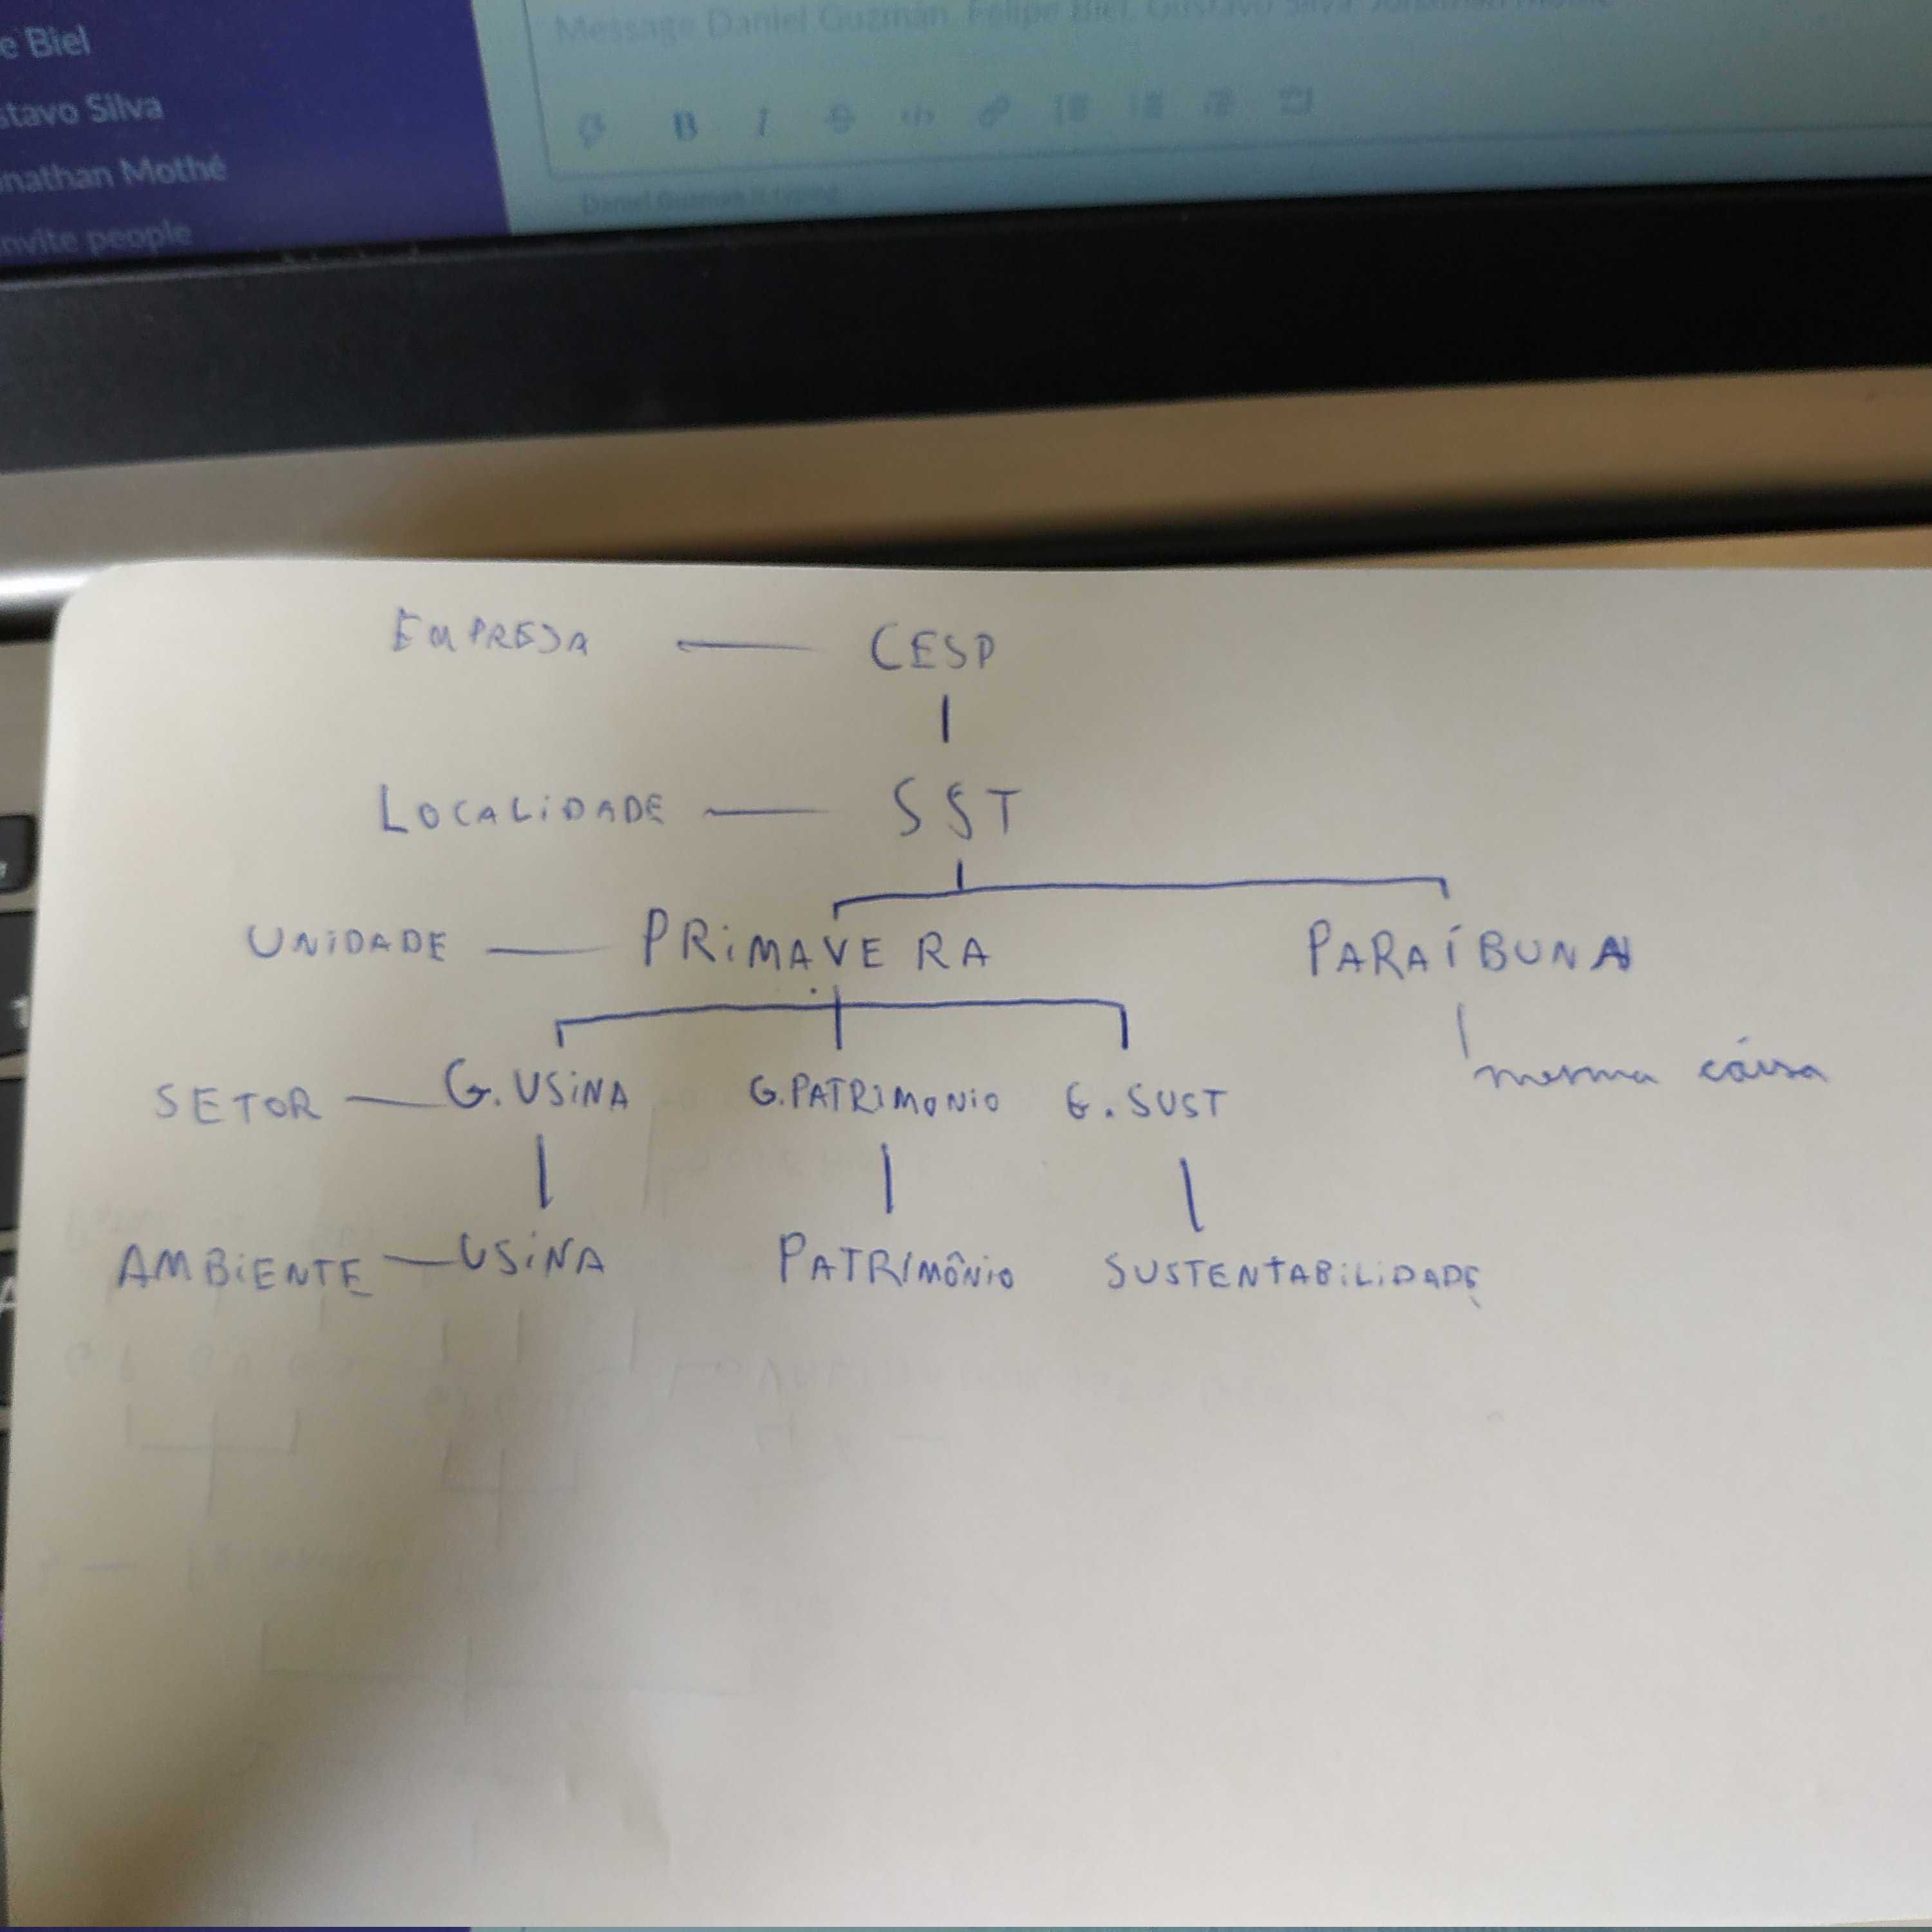 e Biel
stavo Silva
nathan Mothé
nvite people
Message Daniel Guzmán, Felipe Biel, Gustavo Silva, Jonathan Mothé
Daniel Guzman is typing
EMPRESA — CESP
LOCALIDADE — SST
UNIDADE — PRIMAVERA PARAÍBUNA
SETOR — G. USINA G. PATRIMONIO G. SUST mesma coisa
AMBIENTE — USINA PATRIMÔNIO SUSTENTABILIDADE